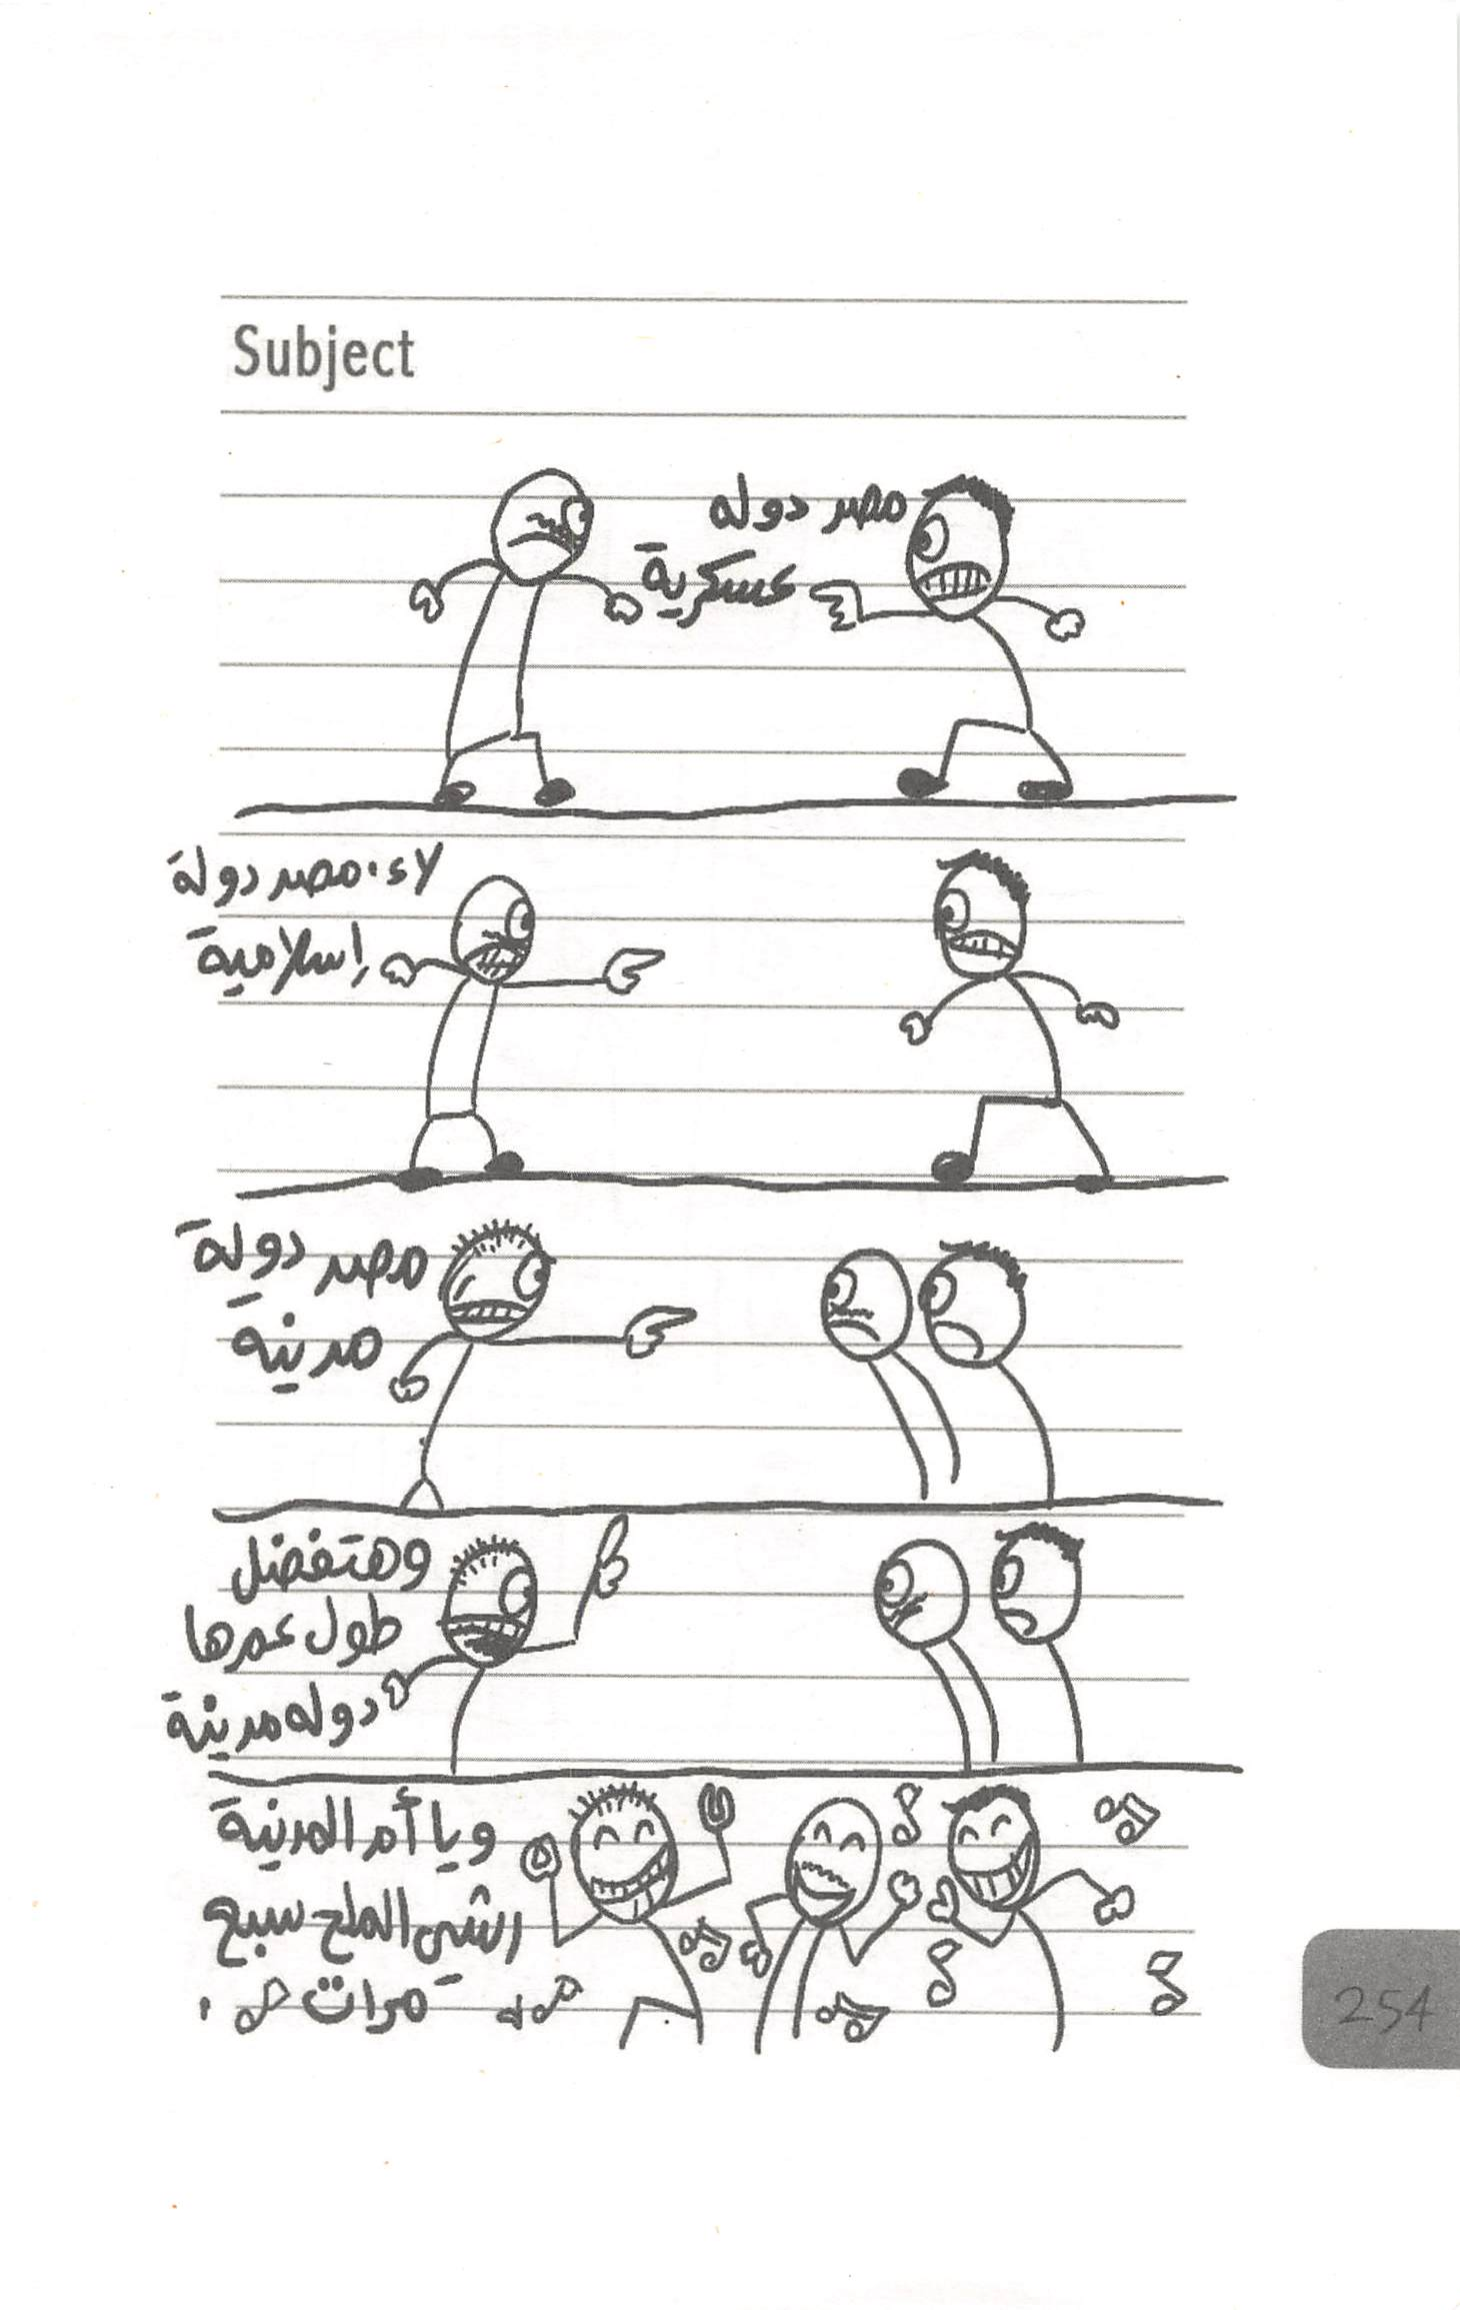 Subject
مصر دوله
عسكرية
لاء. مصر دولة
إسلامية
مصر دولة
مدنية
وهتفضل
طول عمرها
دوله مدنية
ويا أم المدنية
رشي الملح سبع
مرات
254